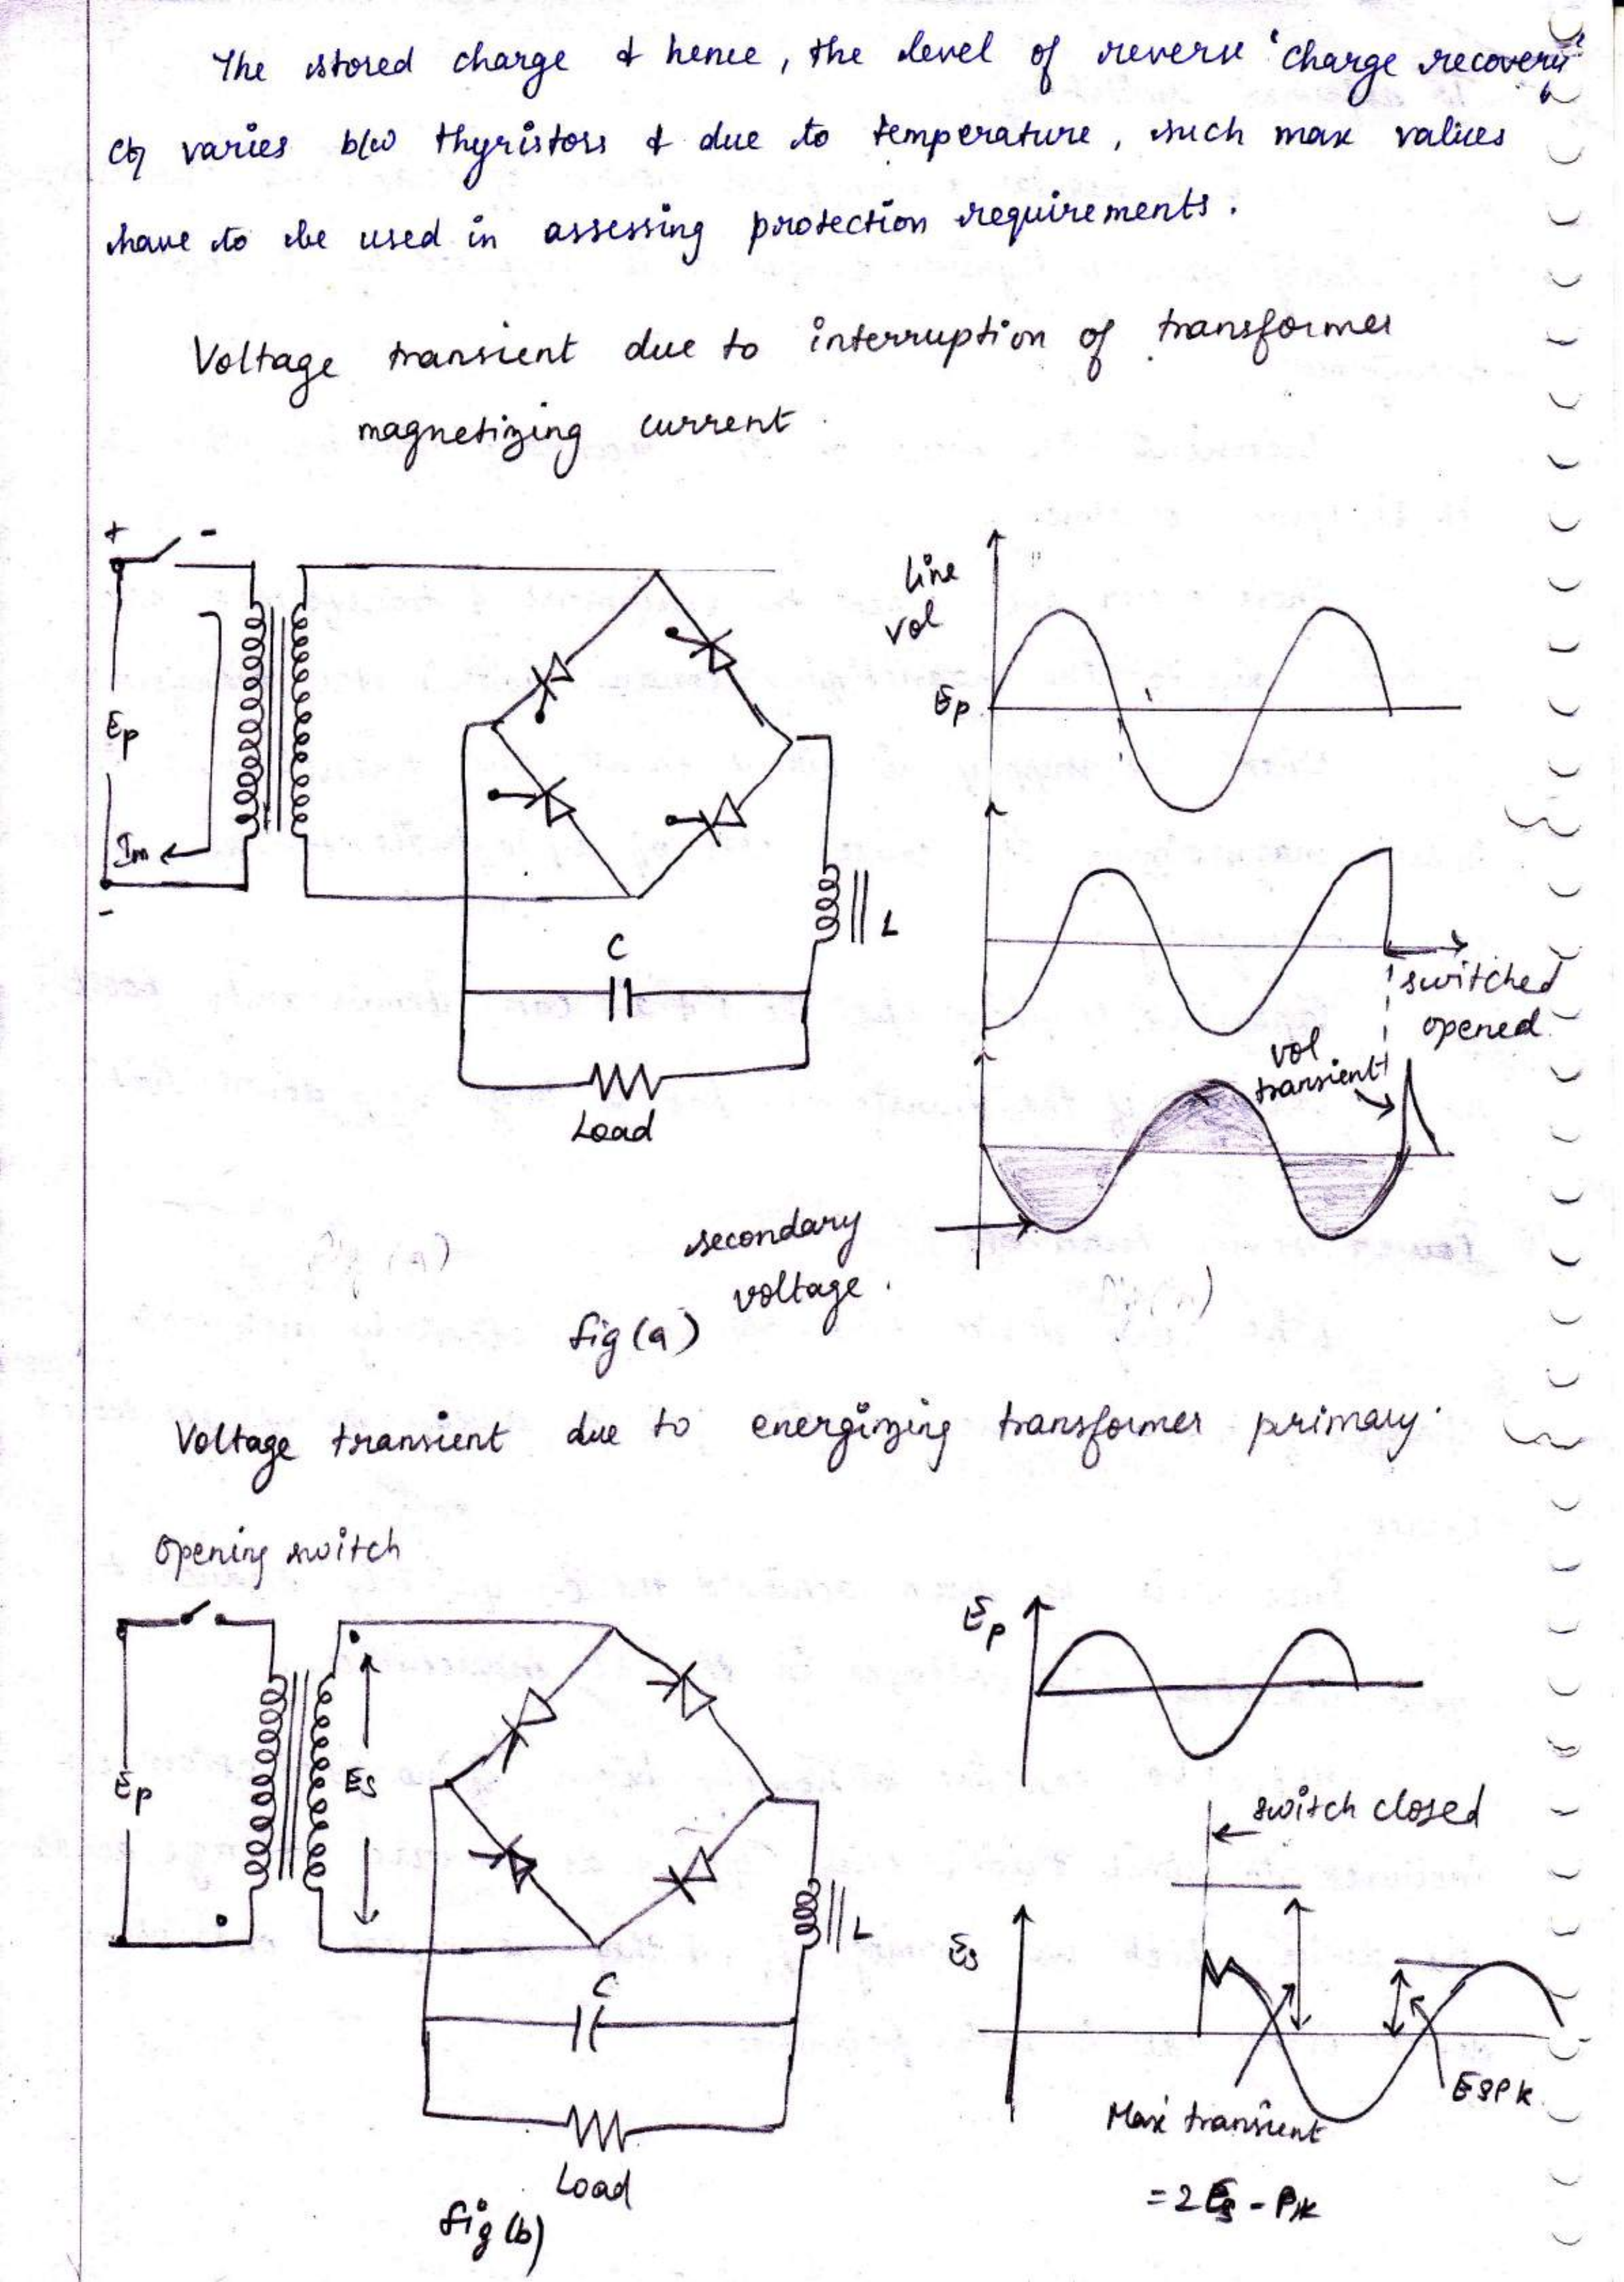 The stored charge & hence, the level of reverse 'charge recovery'
varies b/w thyristors & due to temperature, such max values
have to be used in assessing protection requirements.
Voltage transient due to interruption of transformer
magnetizing current
+ -
Ep
Im
-
C
L
Load
line
vol
Ep
switched
opened
vol
transient
secondary
voltage.
fig (a)
Voltage transient due to energizing transformer primary.
Opening switch
Ep
Es
C
L
Load
fig (b)
Ep
switch closed
Es
Max transient
= 2 Es - Pk
ESPK